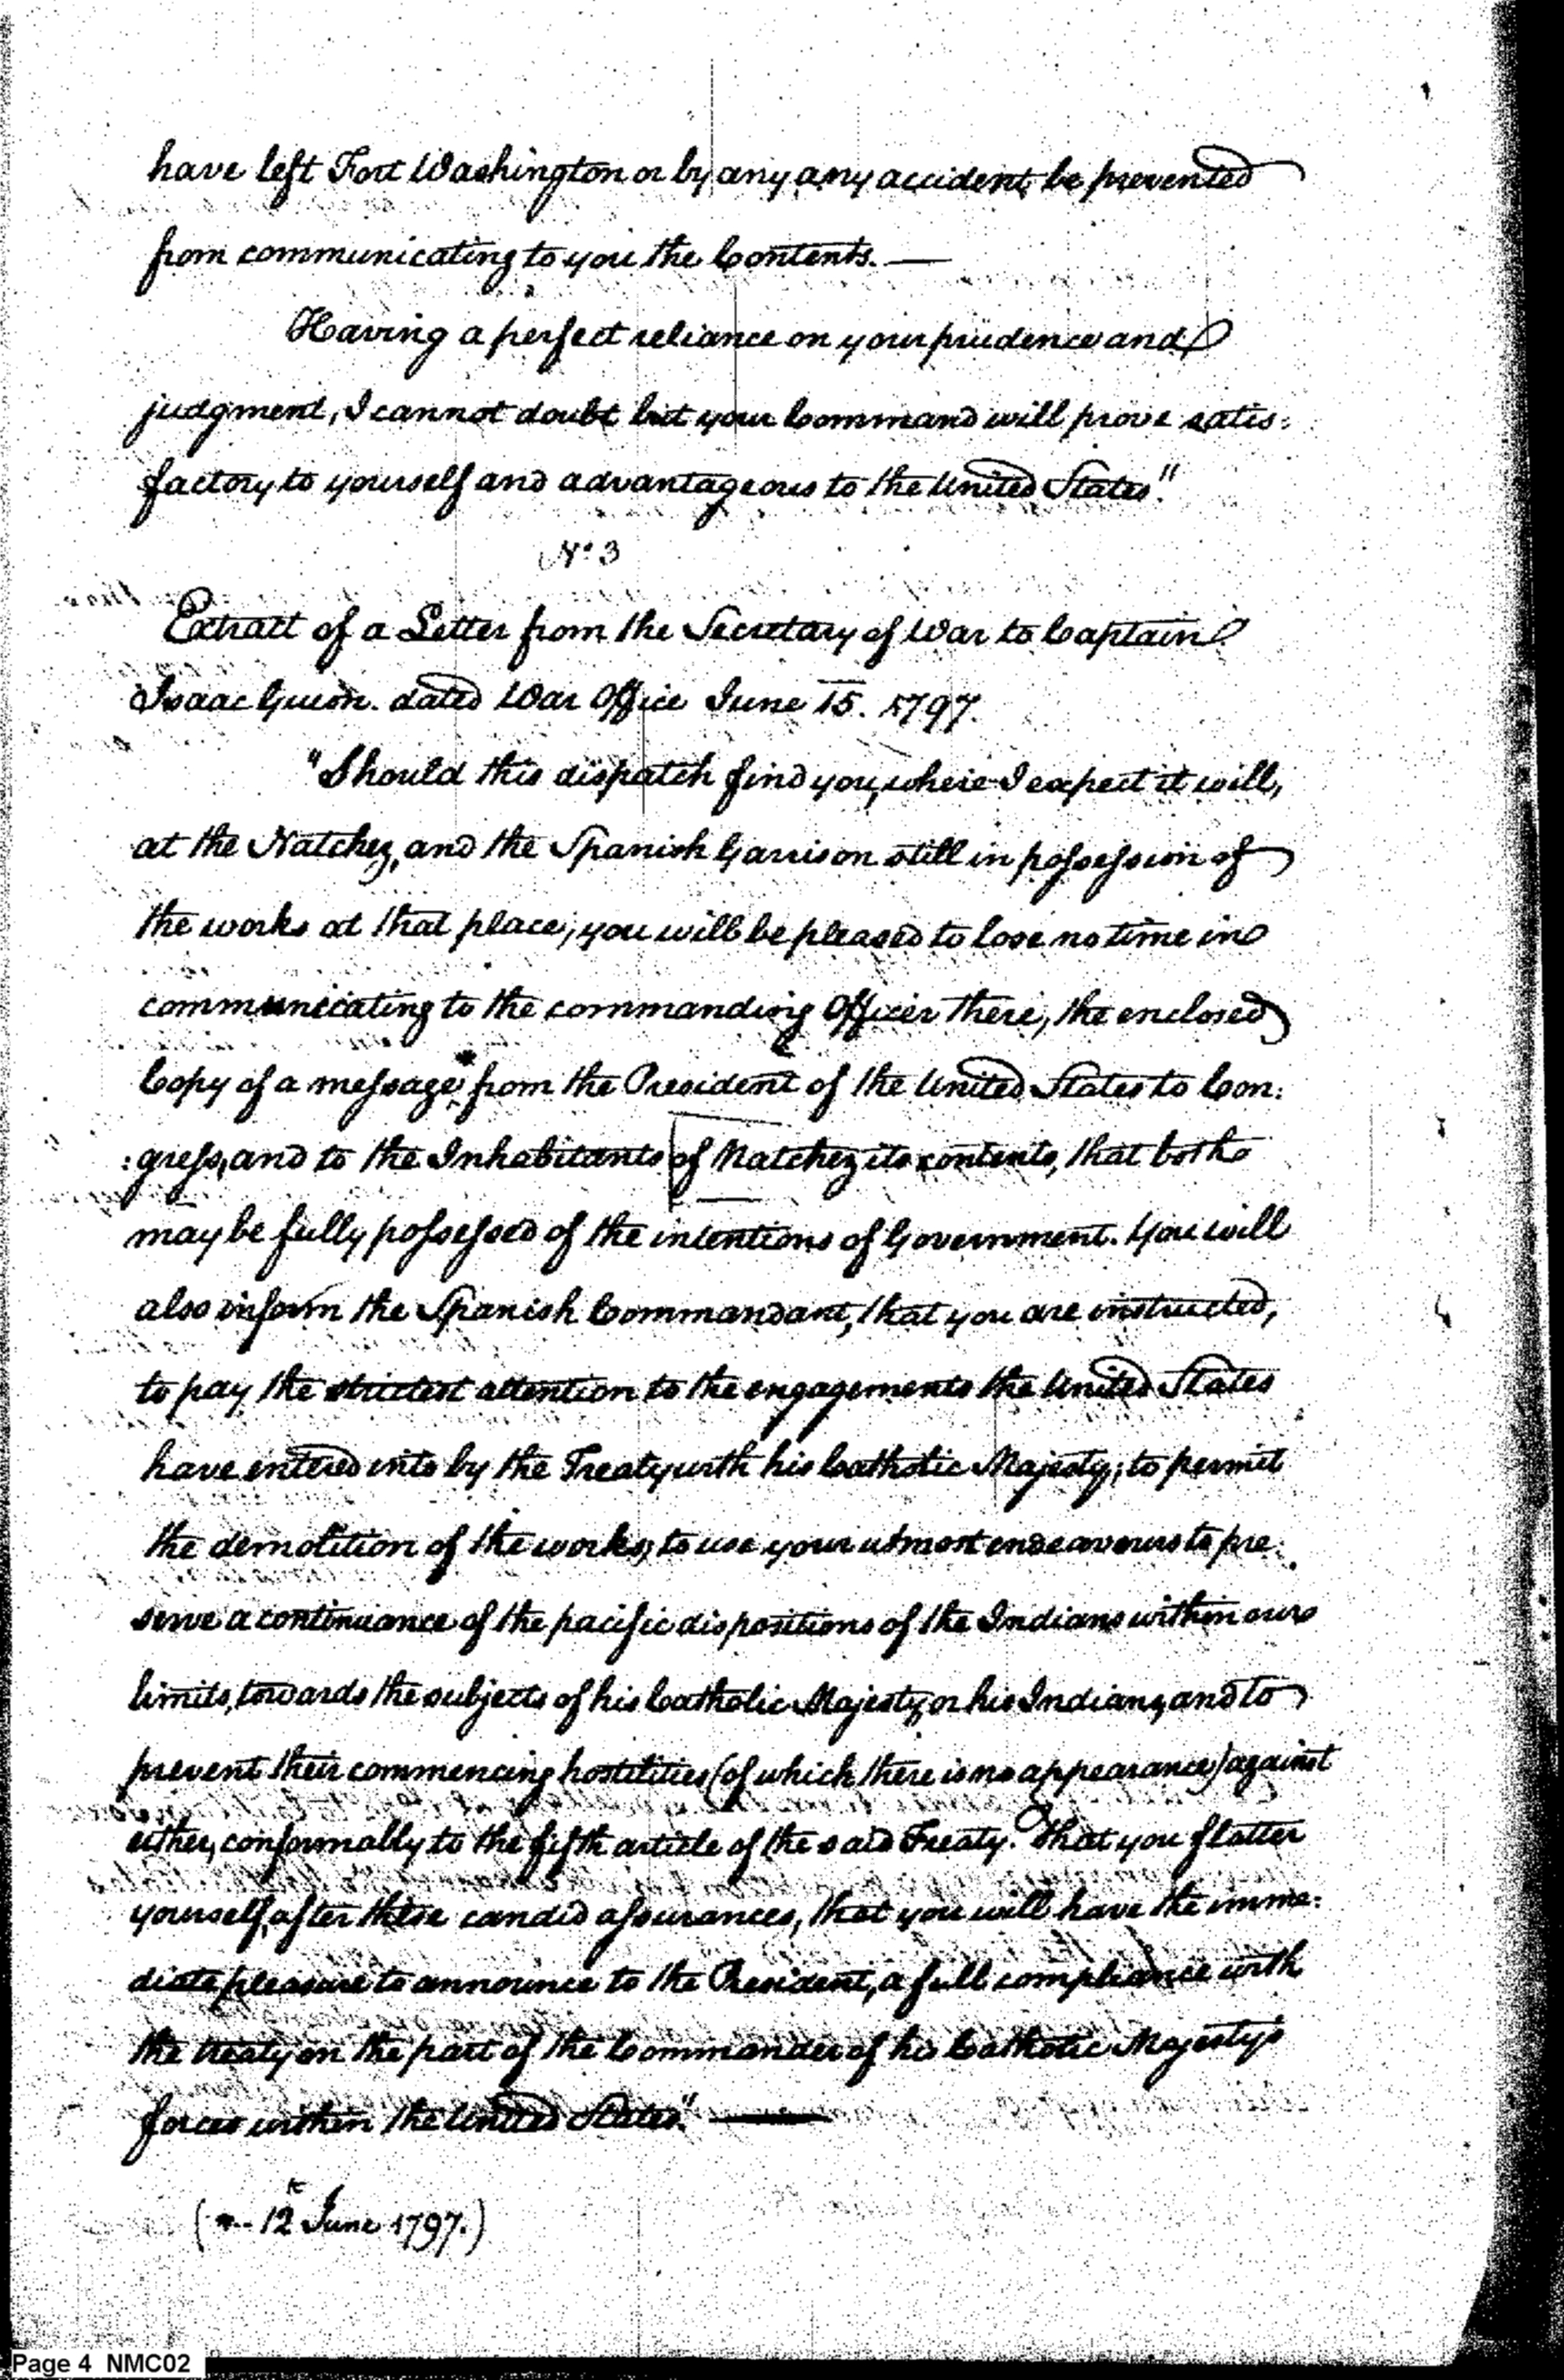 have left Fort Washington or by any any accident, be prevented
from communicating to you the Contents. —
Having a perfect reliance on your prudence and
judgment, I cannot doubt but your Command will prove satis:
factory to yourself and advantageous to the United States."
No. 3
Extract of a Letter from the Secretary of War to Captain
Isaac Guion. dated War Office June 15. 1797.
"Should this dispatch find you, where I expect it will,
at the Natchez, and the Spanish Garrison still in possession of
the works at that place; you will be pleased to lose no time in
communicating to the commanding Officer there, the enclosed
Copy of a message * from the President of the United States to Con:
:gress, and to the Inhabitants of Natchez its contents, that both
may be fully possessed of the intentions of Government. You will
also inform the Spanish Commandant, that you are instructed,
to pay the strictest attention to the engagements the United States
have entered into by the Treaty with his Catholic Majesty; to permit
the demolition of the works; to use your utmost endeavours to pre:
serve a continuance of the pacific dispositions of the Indians within our
limits, towards the subjects of his Catholic Majesty, or his Indians, and to
prevent their commencing hostilities (of which there is no appearance) against
either, conformally to the fifth article of the said Treaty. That you flatter
yourself, after these candid assurances, that you will have the imme:
diate pleasure to announce to the President, a full compliance with
the treaty on the part of the Commander of his Catholic Majesty's
forces within the United States." —
( * -- 12th June 1797.)
Page 4 NMC02